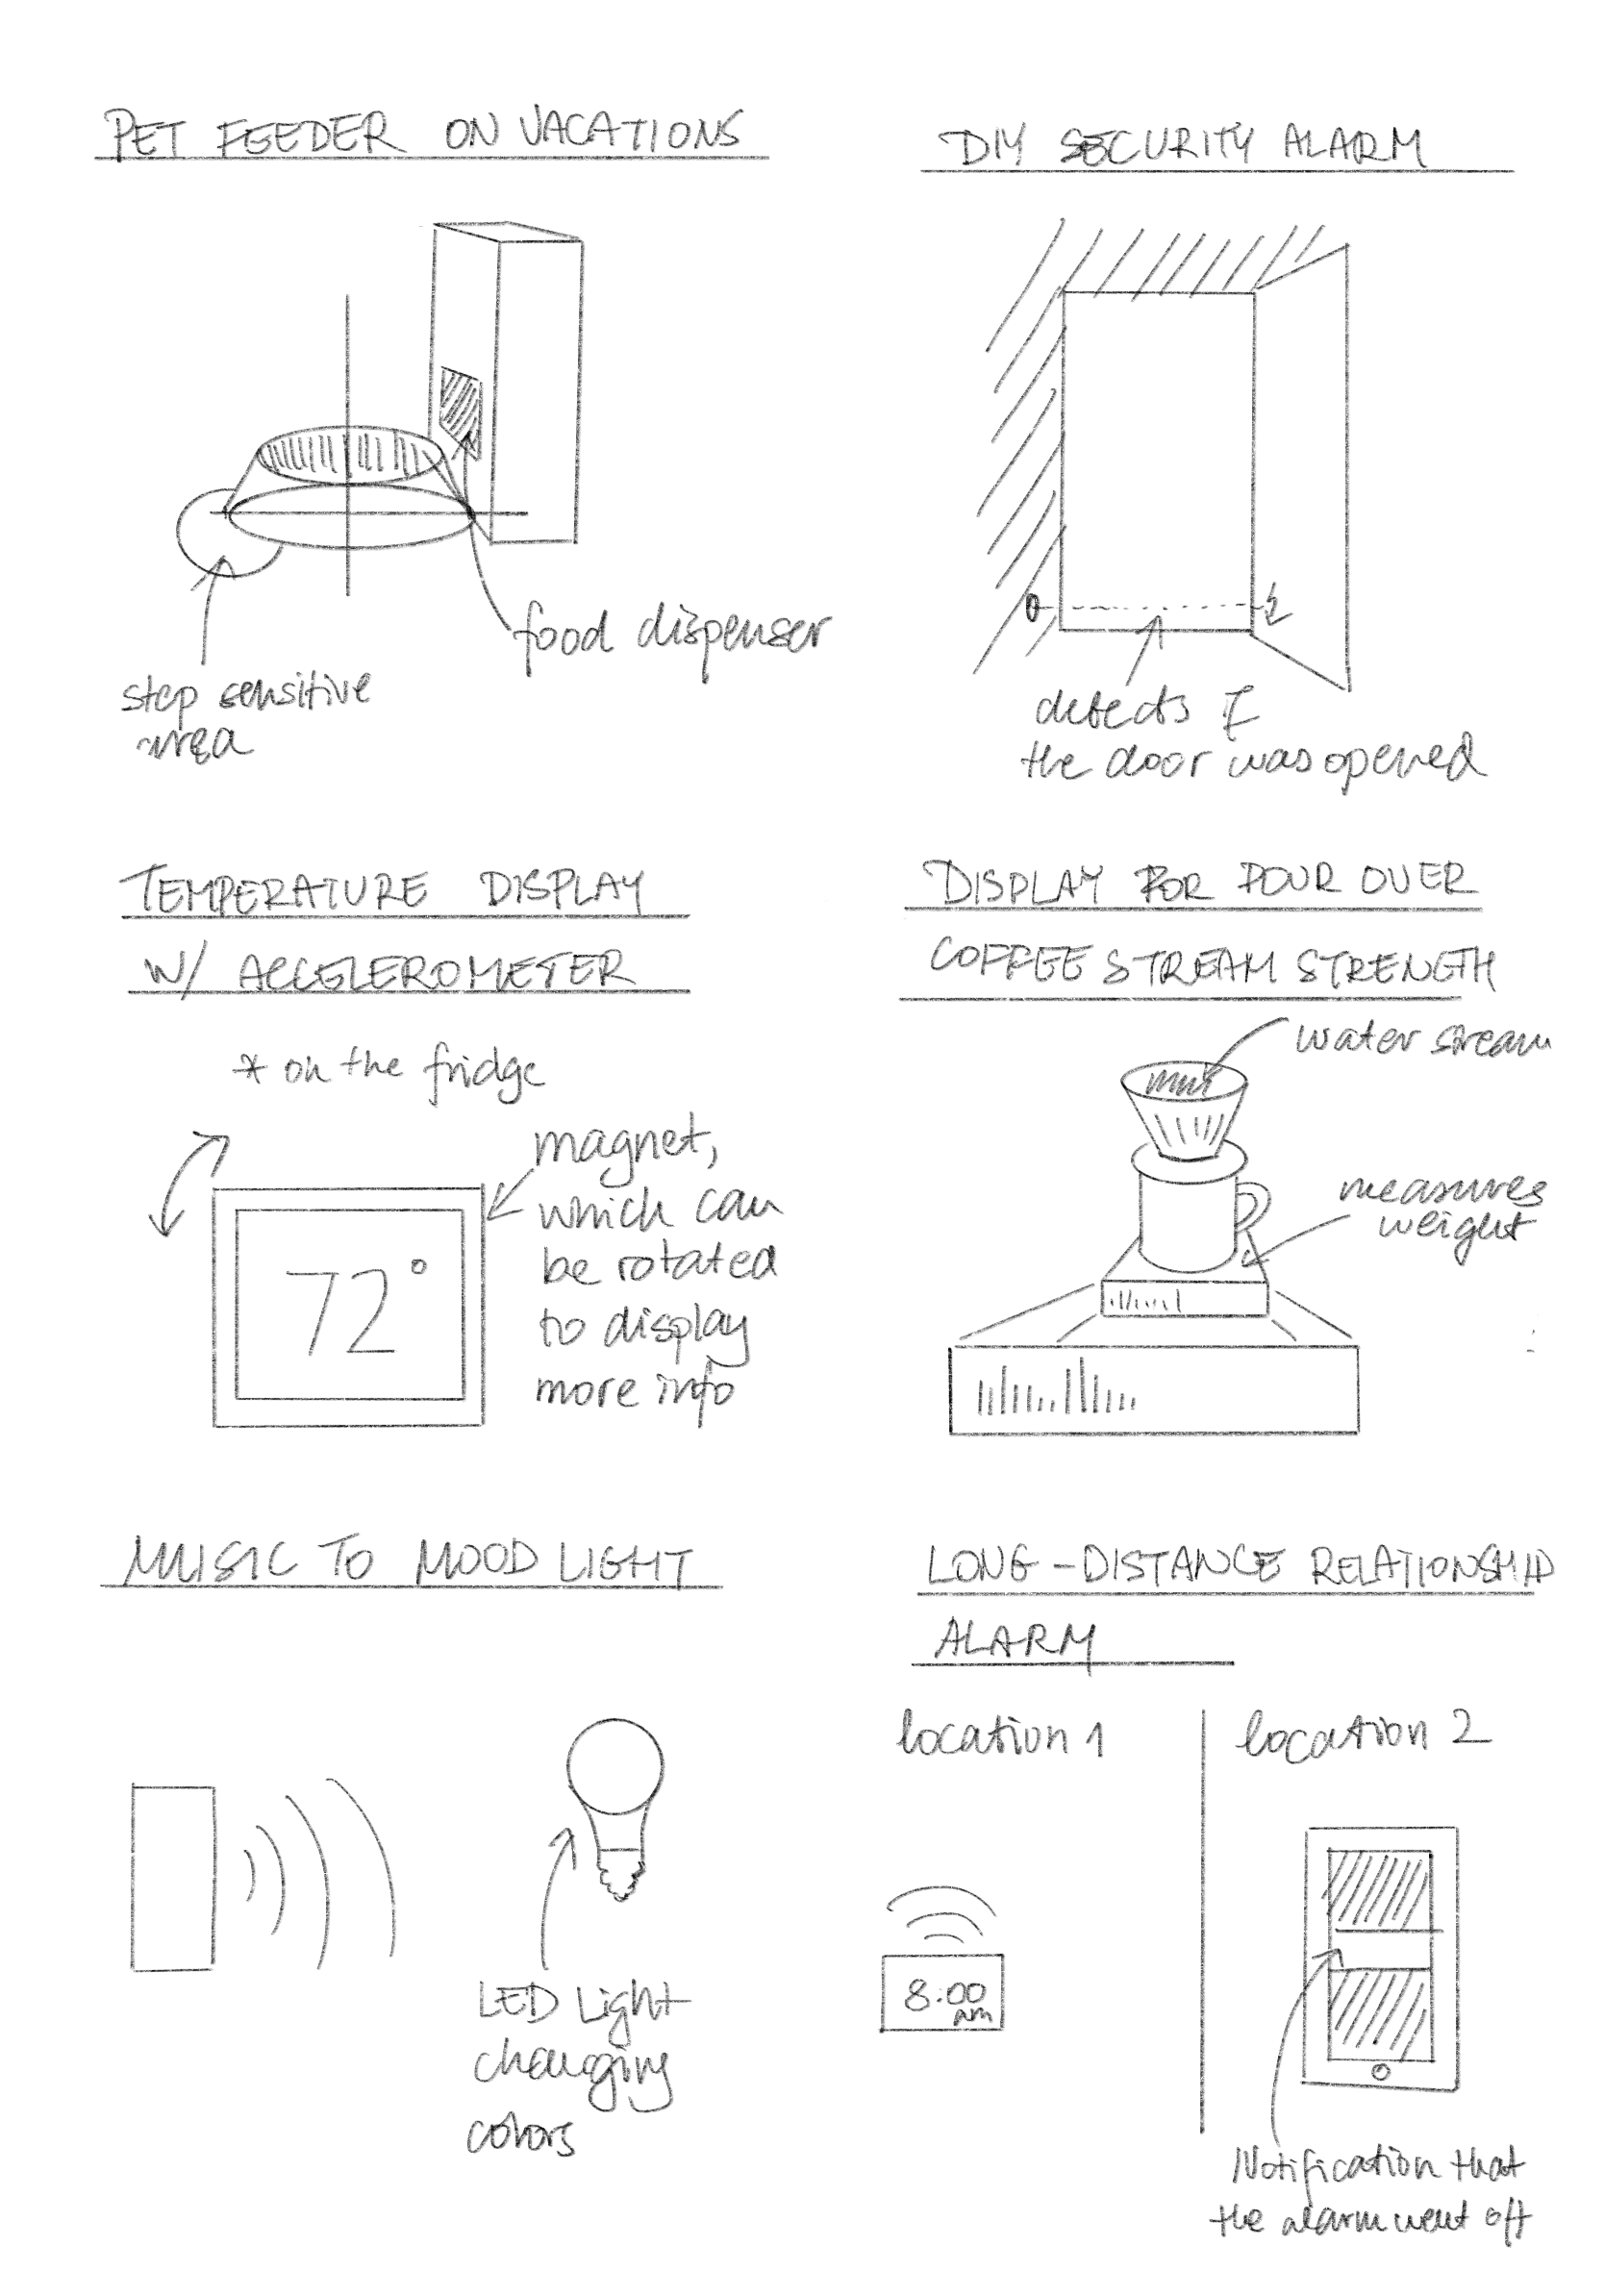 PET FEEDER ON VACATIONS
food dispenser
step sensitive
area
DIY SECURITY ALARM
detects if
the door was opened
TEMPERATURE DISPLAY
W/ ACCELEROMETER
* on the fridge
magnet,
which can
be rotated
to display
more info
72°
DISPLAY FOR POUR OVER
COFFEE STREAM STRENGTH
water stream
measures
weight
MUSIC TO MOOD LIGHT
LED Light
changing
colors
LONG-DISTANCE RELATIONSHIP
ALARM
location 1
location 2
8:00
am
Notification that
the alarm went off